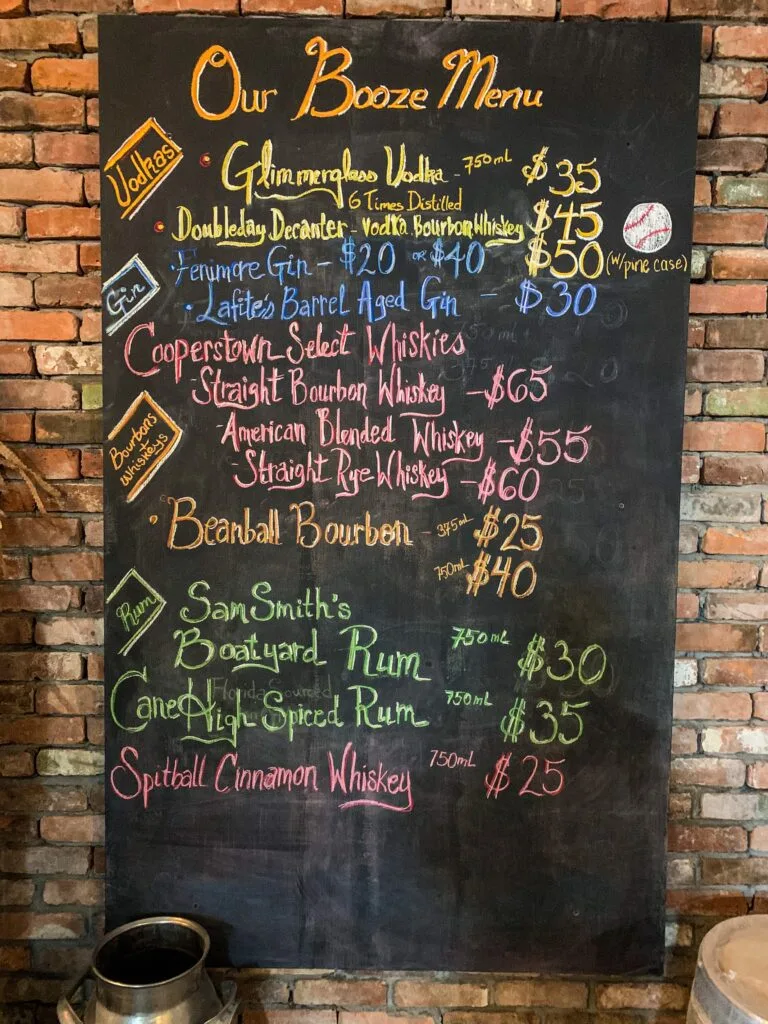 Our Booze Menu
Vodkas
Glimmerglass Vodka - 750mL $35
6 Times Distilled
Doubleday Decanter - Vodka Bourbon Whiskey $45
$50 (w/pine case)
Gin
Fenimore Gin - $20 or $40
Lafite's Barrel Aged Gin - $30
Cooperstown Select Whiskies
- Straight Bourbon Whiskey - $65
Bourbons Whiskeys
- American Blended Whiskey - $55
- Straight Rye Whiskey - $60
Beanball Bourbon - 375mL $25
750mL $40
Rum
Sam Smith's
Boatyard Rum 750mL $30
Florida Sourced
Cane High Spiced Rum 750mL $35
Spitball Cinnamon Whiskey 750mL $25